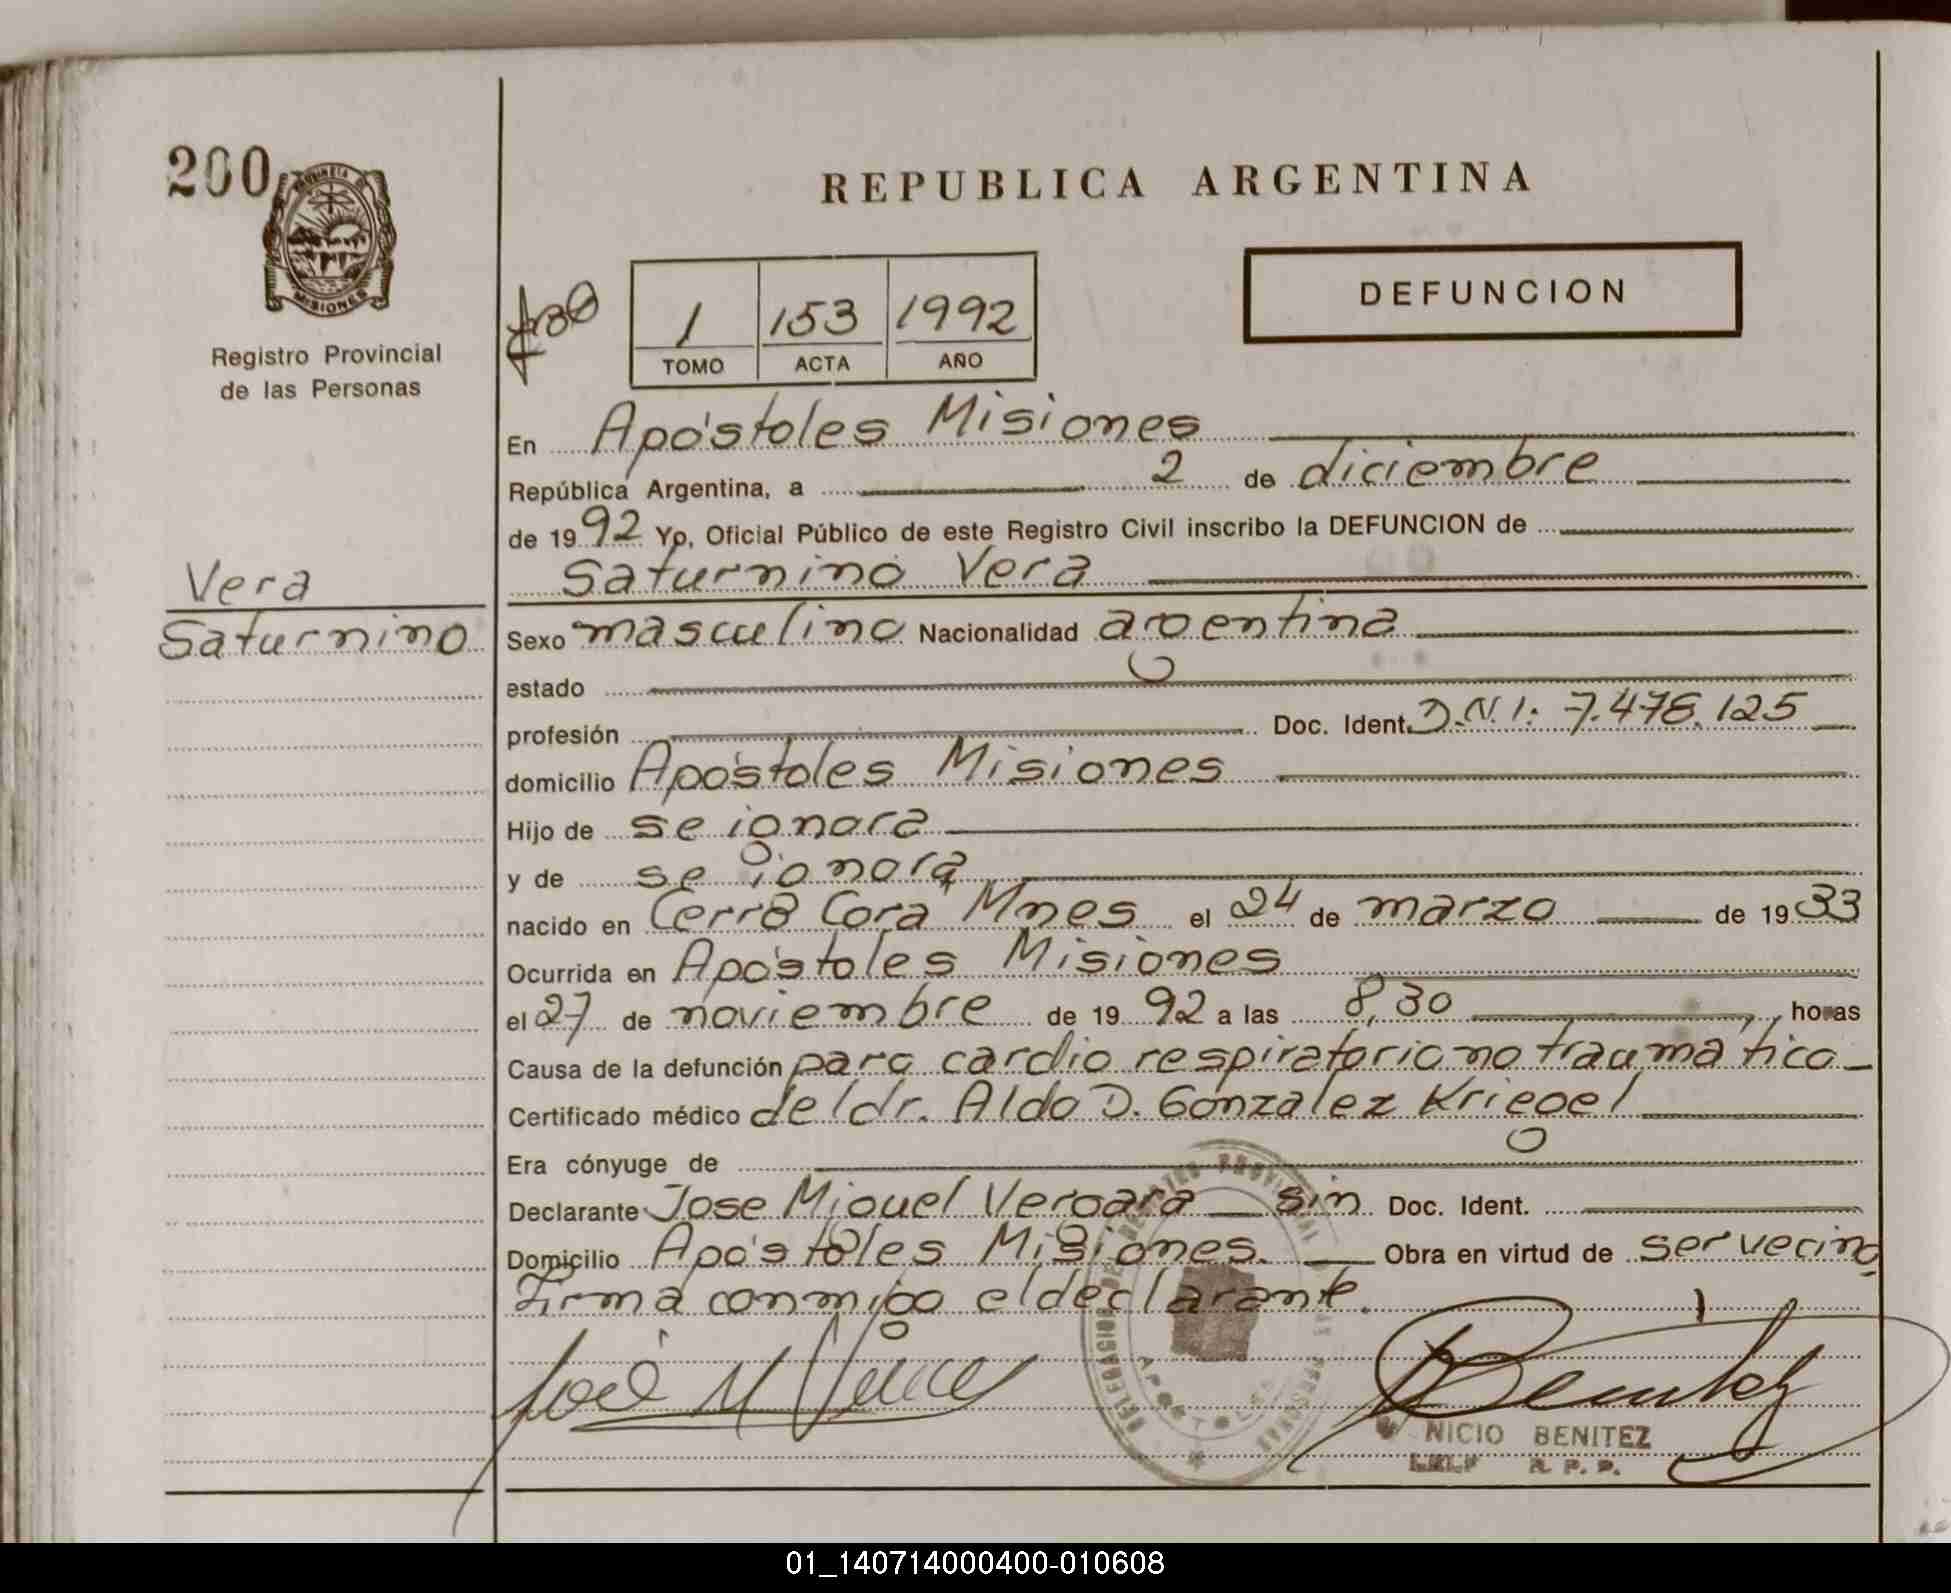 200
PROVINCIA DE
MISIONES
Registro Provincial
de las Personas
REPUBLICA ARGENTINA
DEFUNCION
1 153 1992
TOMO ACTA AÑO
En Apóstoles Misiones
República Argentina, a 2 de diciembre
de 1992 Yo, Oficial Público de este Registro Civil inscribo la DEFUNCION de
Saturnino Vera
Vera
Saturnino
Sexo masculino Nacionalidad argentina
estado
profesión Doc. Ident. D.N.I: 7.478.125
domicilio Apóstoles Misiones
Hijo de se ignora
y de se ignora
nacido en Cerro Cora Mnes el 24 de marzo de 1933
Ocurrida en Apóstoles Misiones
el 27 de noviembre de 1992 a las 8,30 horas
Causa de la defunción paro cardio respiratorio no traumatico
Certificado médico del dr. Aldo D. Gonzalez Kriegel
Era cónyuge de
Declarante Jose Miguel Vergara sin Doc. Ident.
Domicilio Apóstoles Misiones. Obra en virtud de ser vecino
Firma conmigo el declarante.
DELEGACION DE REGISTRO PROVINCIAL DE LAS PERSONAS
APOSTOLES
NICIO BENITEZ
R. P. P.
01_140714000400-010608